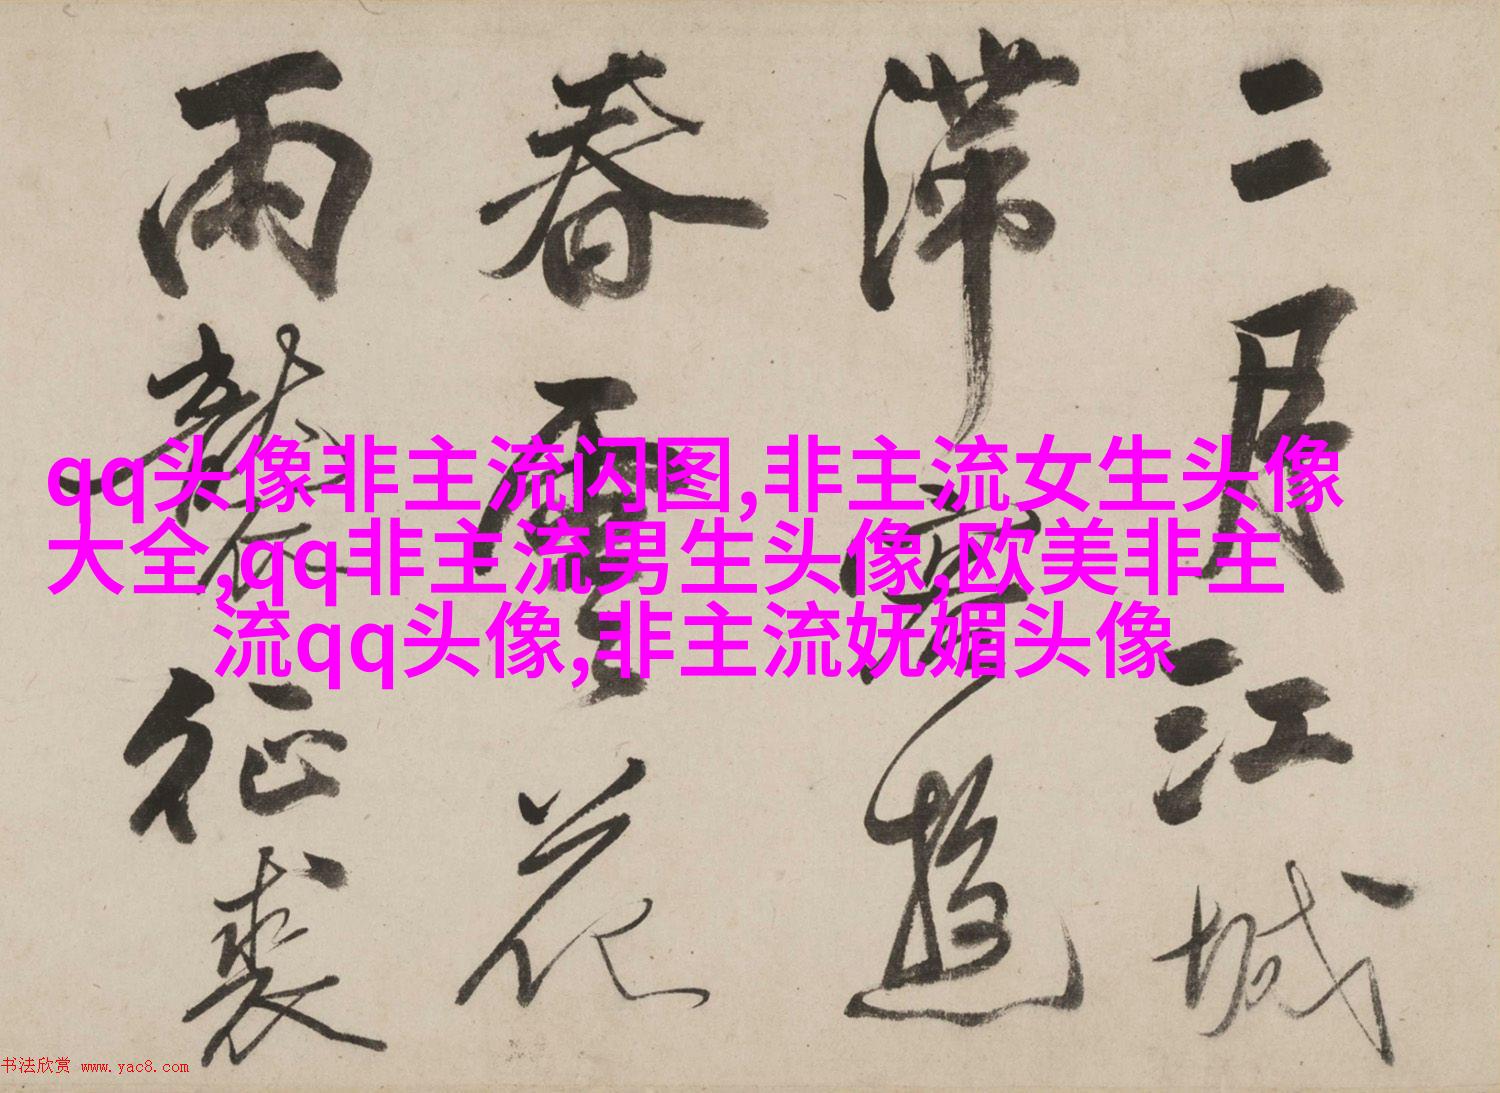 二月江城
滞客遊
春雲花
雨襲征裘
qq头像非主流闪图,非主流女生头像
大全,qq非主流男生头像,欧美非主
流qq头像,非主流妩媚头像
书法欣赏 www.yac8.com